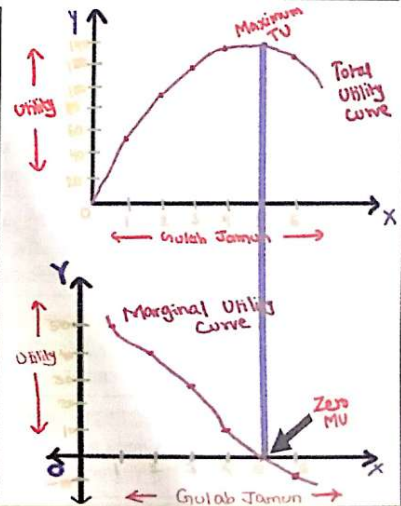 Y
Maximum
TU
Utility
Total
Utility
curve
60
40
20
0
1
2
3
4
6
X
Gulab Jamun
Y
Marginal Utility
Curve
Utility
Zero
MU
O
X
Gulab Jamun